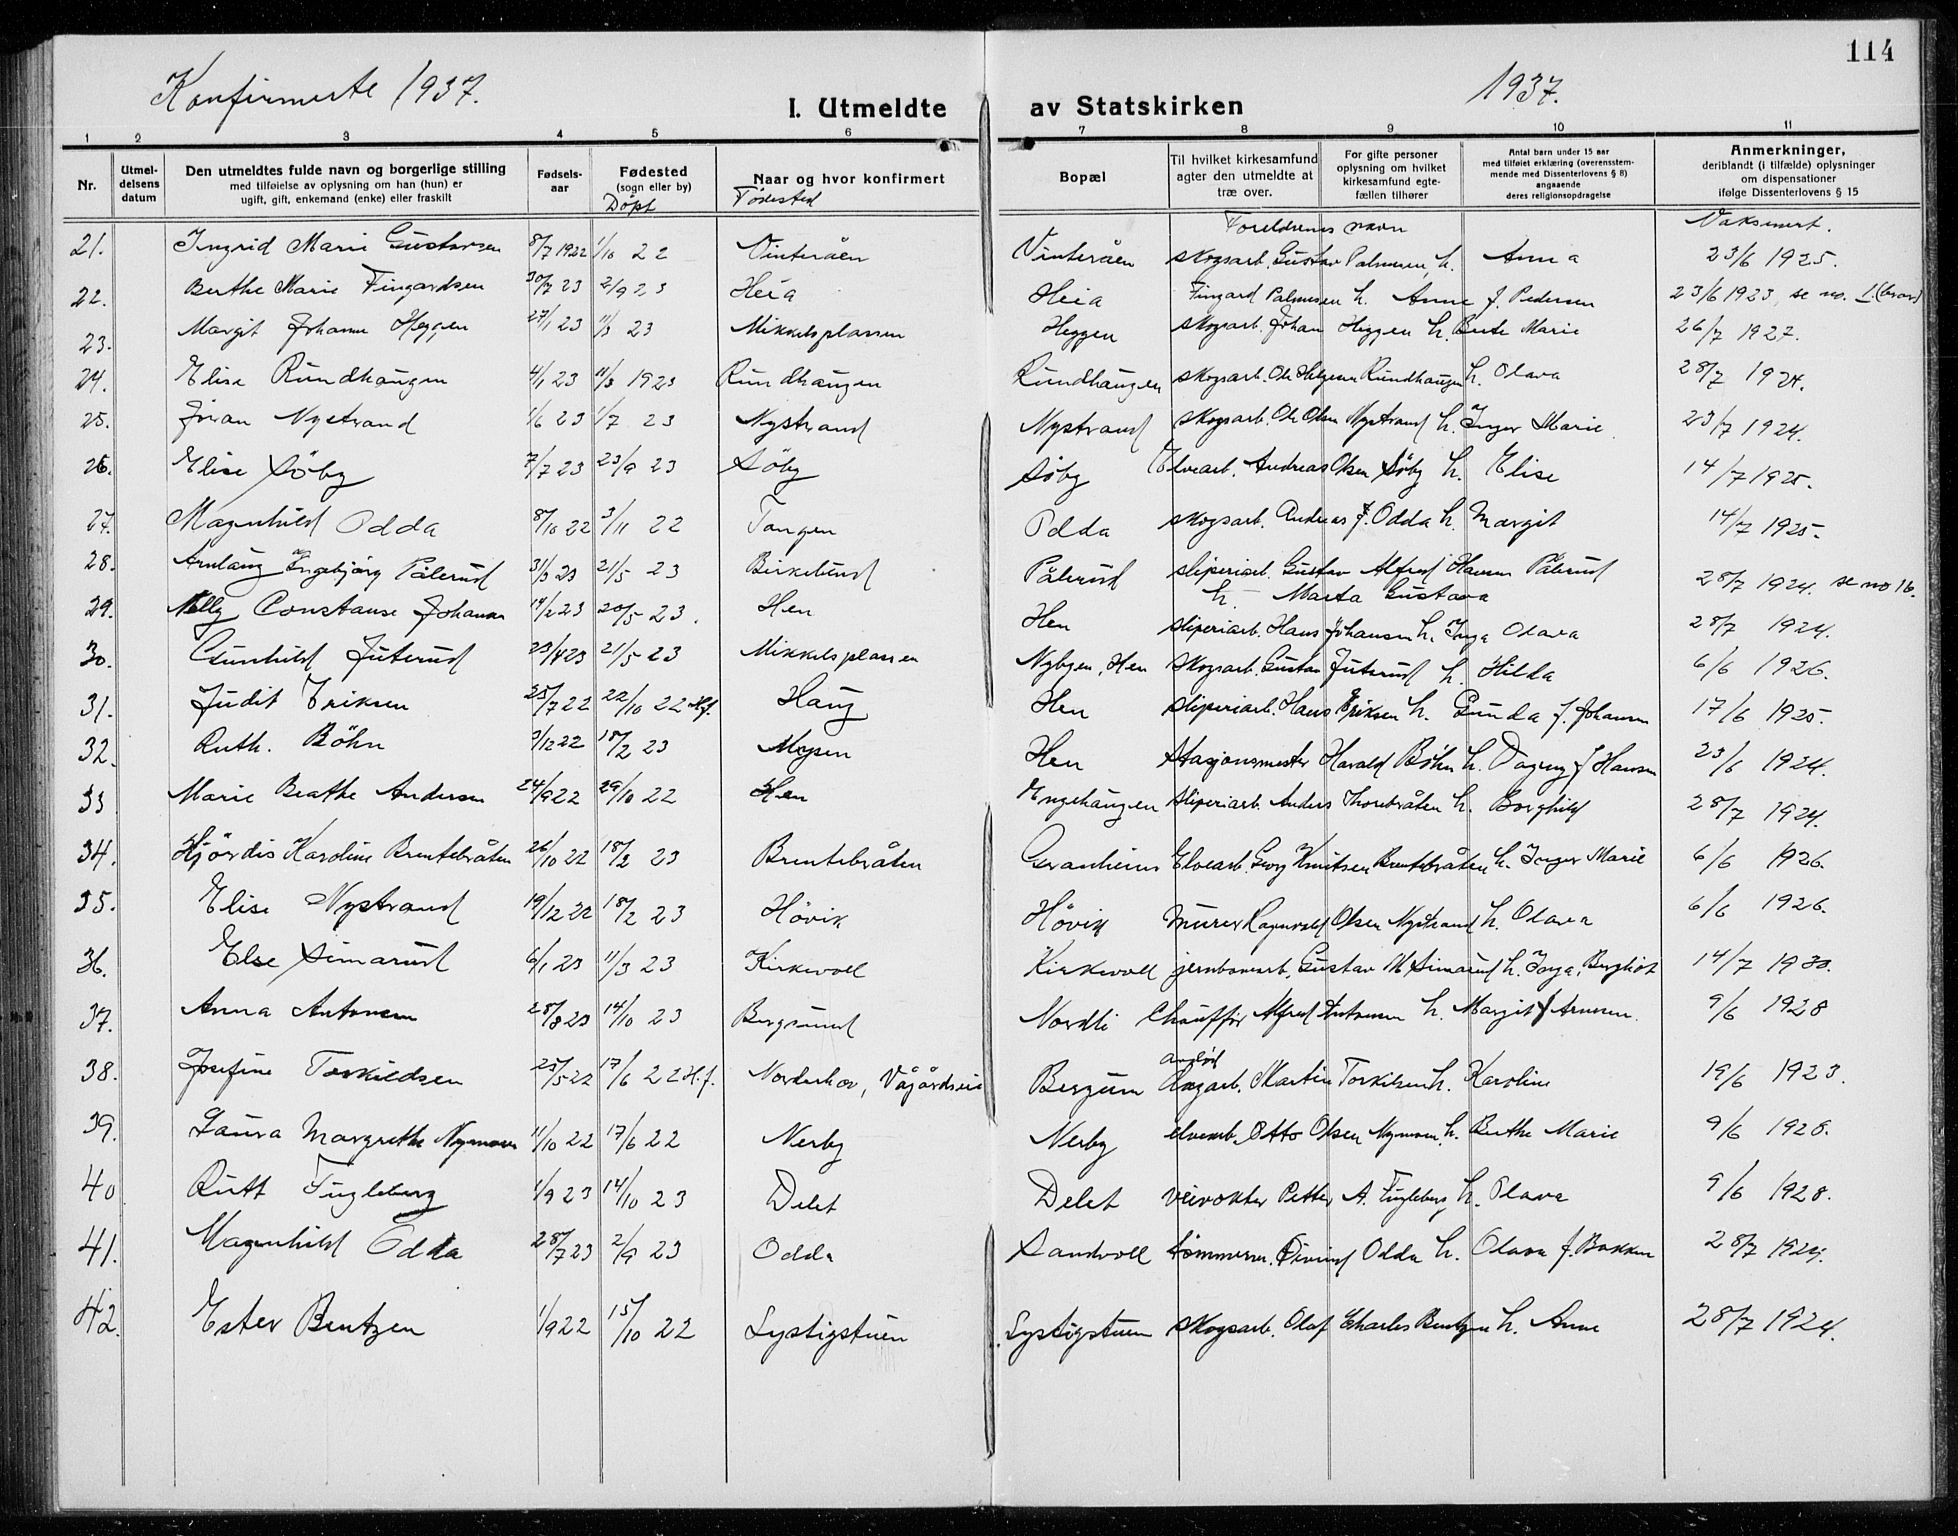 114
Konfirmerte 1937.
1937.
I. Utmeldte av Statskirken
1 2 3 4 5 6 7 8 9 10 11
Nr.
Utmel-
delsens
datum
Den utmeldtes fulde navn og borgerlige stilling
med tilføielse av oplysning om han (hun) er
ugift, gift, enkemand (enke) eller fraskilt
Fødsels-
aar
Fødested
(sogn eller by)
Döpt
Naar og hvor konfirmert
Födested
Bopæl
Til hvilket kirkesamfund
agter den utmeldte at
træ over.
For gifte personer
oplysning om hvilket
kirkesamfund egte-
fællen tilhører
Antal barn under 15 aar
med tilføiet erklæring (overensstem-
mende med Dissenterlovens § 8)
angaaende
deres religionsopdragelse
Anmerkninger,
deriblandt (i tilfælde) oplysninger
om dispensationer
ifølge Dissenterlovens § 15
Foreldrenes navn Vaksinert.
21. Ingrid Marie Gustavsen 8/7 1922 1/10 22 Vinteråen Vinteråen skogsarb. Gustav Palmesen, h. Anna 23/6 1925.
22. Berthe Marie Fingardsen 30/7 23 2/9 23 Heia Heia Fingard Palmesen h. Anne f. Pedersen 23/6 1923, se no. 1.
23. Margit Johanne Heggen 27/1 23 11/3 23 Mikkelsplassen Heggen skogsarb. Johan Heggen h. Berte Marie 26/7 1927.
24. Elise Rundhaugen 4/1 23 11/3 1923 Rundhaugen Rundhaugen skogsarb. Ole Helgesen Rundhaugen h. Olava 28/7 1924.
25. Jöran Nystrand 1/6 23 1/7 23 Nystrand Nystrand skogsarb. Ole Olsen Nystrand h. Inger Marie 23/7 1924.
26. Elise Söby 7/7 23 23/9 23 Söby Söby Elvearb. Andreas Olsen Söby h. Elise 14/7 1925.
27. Magnhild Odda 8/10 22 3/11 22 Tangen Odda skogsarb. Andreas J. Odda h. Margit 14/7 1925.
28. Arnlaug Ingebjørg Pålerud 31/3 23 21/5 23 Birkelund Pålerud sliperiarb. Gustav Alfred Hansen Pålerud
h. Marta Gustava 28/7 1924. se no 16.
29. Nelly Constanse Johansen 14/2 23 20/5 23. Hen Hen sliperiarb. Hans Johansen h. Inga Olava 28/7 1924.
30. Gunhild Juterud 23/4 23 21/5 23 Mikkelsplassen Nybyen, Hen skogsarb. Gustav Juterud h. Hilda 6/6 1926.
31. Judit Eriksen 25/7 22 22/10 22 H.f. Haug Hen sliperiarb. Hans Eriksen h. Gunda f. Johansen 17/6 1925.
32. Ruth. Böhn 3/12 22 18/2 23 Mysen Hen Stasjonsmester Harald Böhn h. Dagny f Hansen 23/6 1924.
33 Marie Beathe Andersen 24/9 22 29/10 22 Hen Engehaugen sliperiarb. Anders Thorebråten h. Borghild 28/7 1924.
34. Hjördis Karoline Brentebråten 26/10 22 18/2 23 Brentebråten Granheim Elvearb. Georg Knutsen Brentebråten h. Inger Marie 6/6 1926.
35. Elise Nystrand 19/12 22 18/2 23 Hövik Hövik murer Ragnvald Olsen Nystrand h. Olava 6/6 1926.
36. Else Simarud 6/1 23 11/3 23 Kirkevoll Kirkevoll jernbanearb. Gustav M Simarud h. Inga, Bergliot 14/7 1930.
37. Anna Antonsen 28/8 23 14/10 23 Bergsund Nordli Chaufför Alfred Antonsen h. Margit f Arnesen. 9/6 1928
38. Josefine Torkildsen 25/5 22 17/6 22 H.f. Norderhov, Bergum Anlegsarb. Martin Torkilsen h. Karoline 19/6 1923.
39. Laura Margrethe Nymoen 11/10 22 17/6 22 Nerby Nerby elvearb. Otto Olsen Nymoen. h. Berthe Marie 9/6 1928.
40 Rutt Fugleberg 1/9 23 14/10 23 Delet Delet veivokter Petter A. Fugleberg h. Olava 9/6 1928.
41. Magnhild Odda 28/7 23 2/9 23 Odda Sandvoll tömmerm. Öivind Odda h. Olava f. Bakken 28/7 1924.
42. Ester Bentzen 1/9 22 15/10 22 Lystigstuen Lystigstuen skogsarb. Olaf Charles Bentzen h. Anne 28/7 1924.